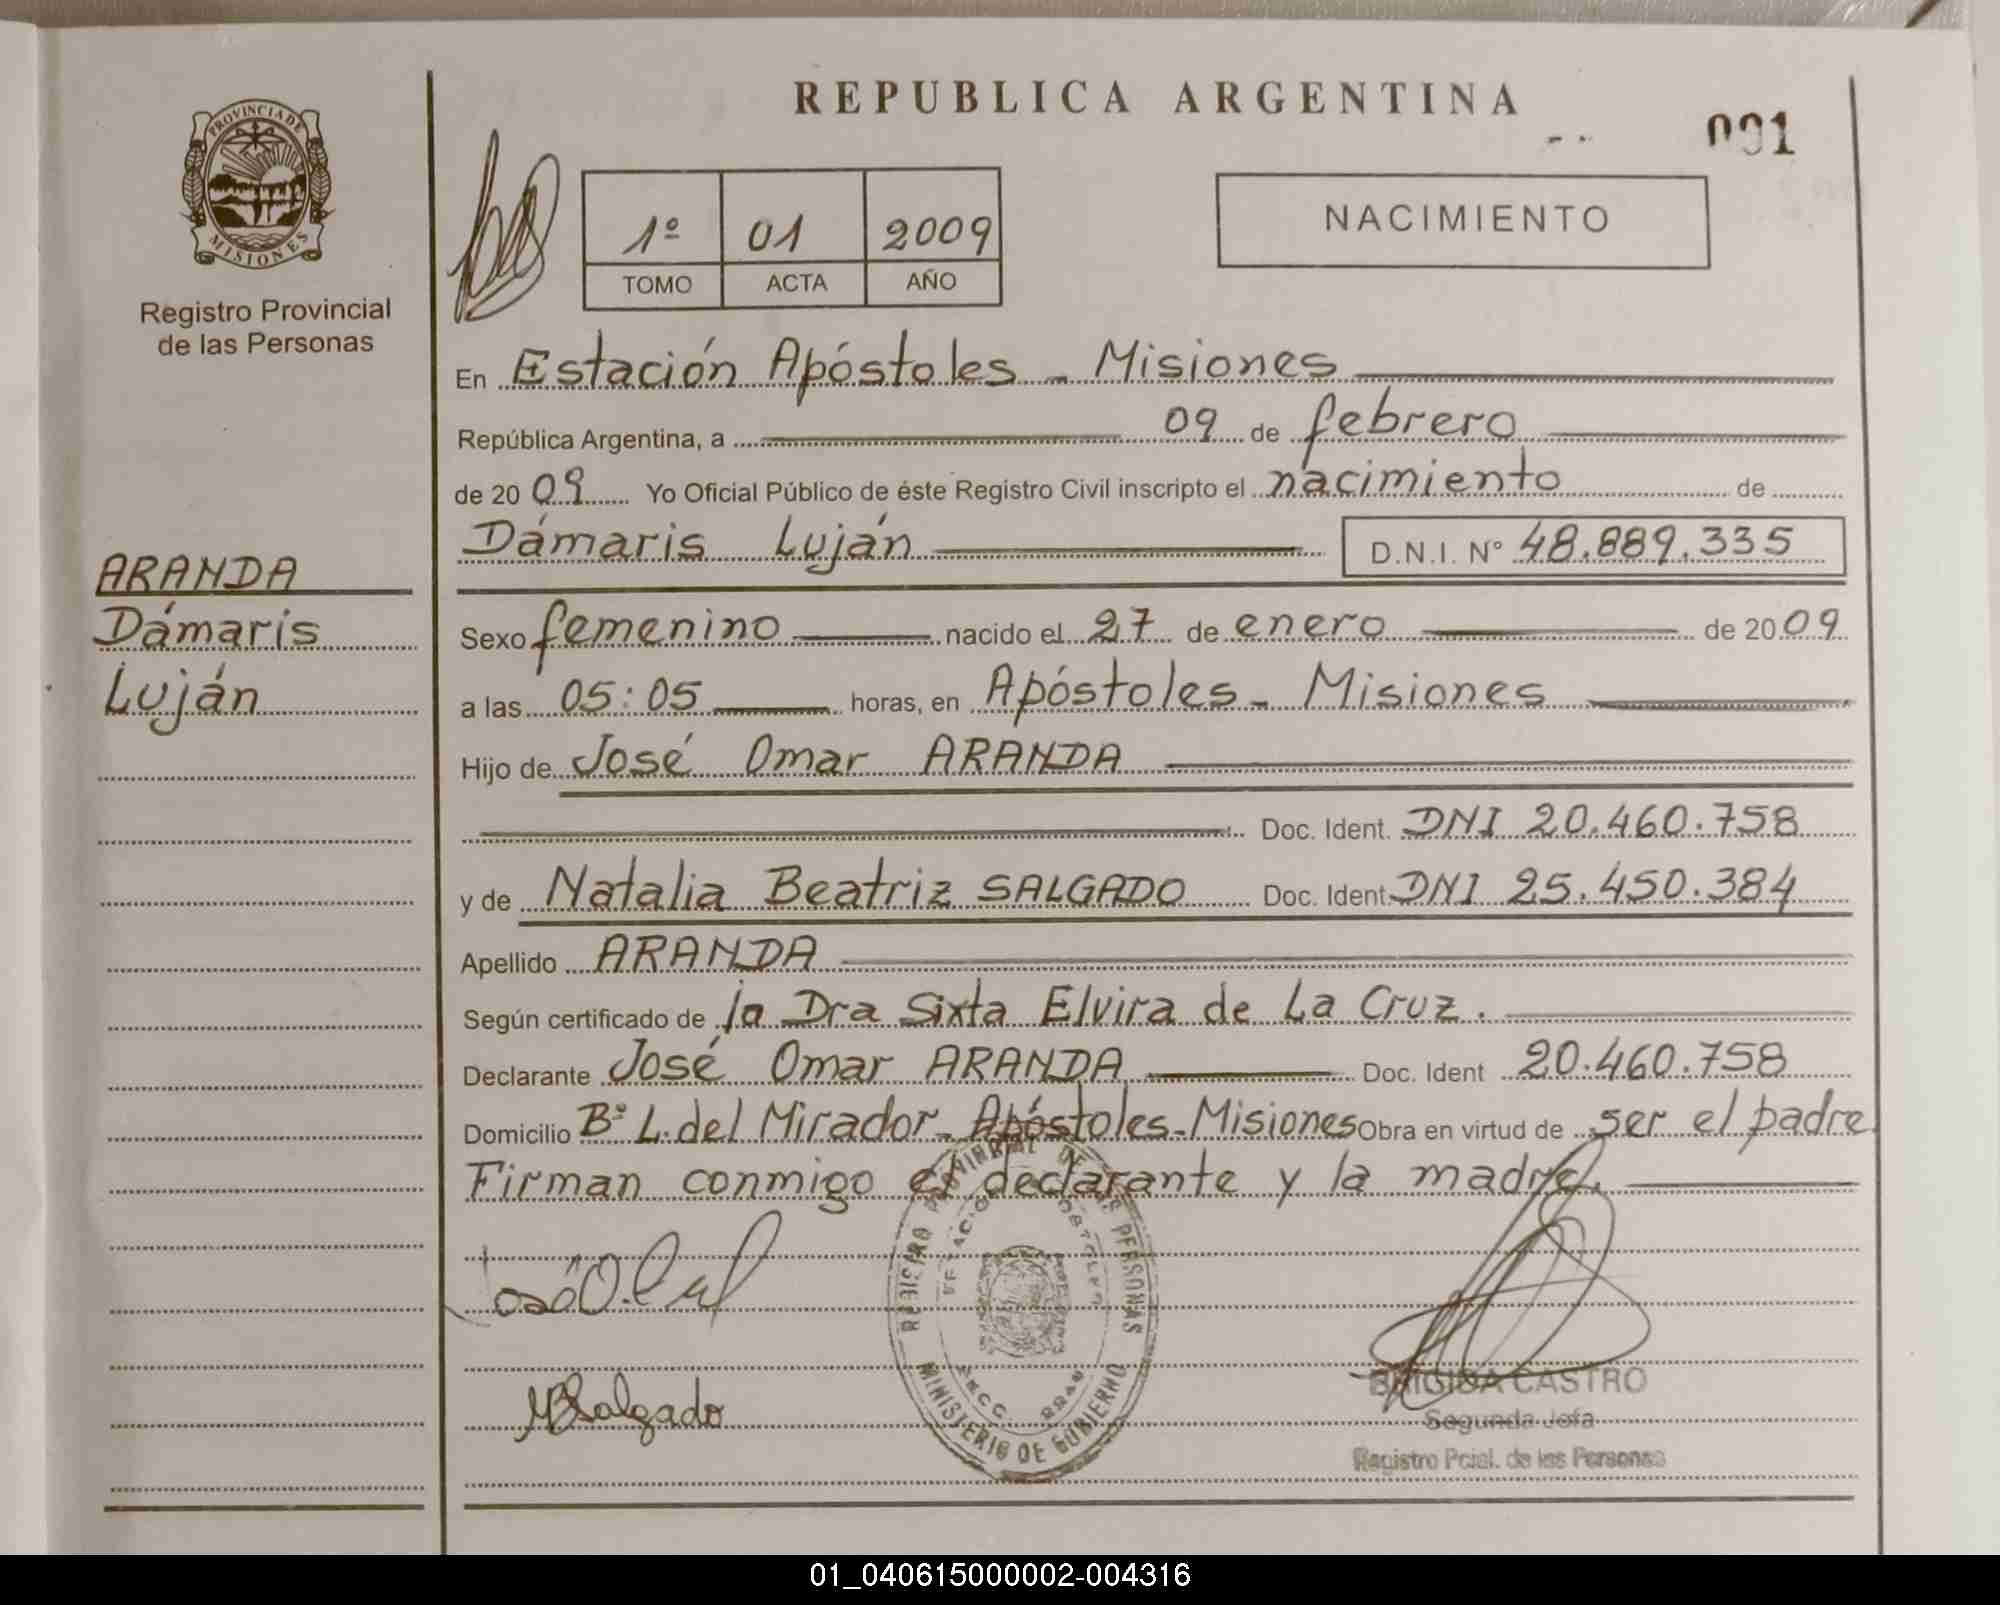 REPUBLICA ARGENTINA
001
PROVINCIA DE
MISIONES
Registro Provincial
de las Personas
1º 01 2009
TOMO ACTA AÑO
NACIMIENTO
En Estación Apóstoles - Misiones
República Argentina, a 09 de febrero
de 20 09 Yo Oficial Público de éste Registro Civil inscripto el nacimiento de
Dámaris Luján D.N.I. Nº 48.889.335
ARANDA
Dámaris
Luján
Sexo femenino nacido el 27 de enero de 20 09
a las 05:05 horas, en Apóstoles - Misiones
Hijo de José Omar ARANDA
Doc. Ident. DNI 20.460.758
y de Natalia Beatriz SALGADO Doc. Ident. DNI 25.450.384
Apellido ARANDA
Según certificado de la Dra Sixta Elvira de La Cruz.
Declarante José Omar ARANDA Doc. Ident 20.460.758
Domicilio Bº L. del Mirador - Apóstoles - Misiones Obra en virtud de ser el padre
Firman conmigo el declarante y la madre.
REGISTRO PROVINCIAL DE LAS PERSONAS
MINISTERIO DE GOBIERNO
NBSalgado
BRIGIDA CASTRO
Segunda Jefa
Registro Pcial. de las Personas
01_040615000002-004316